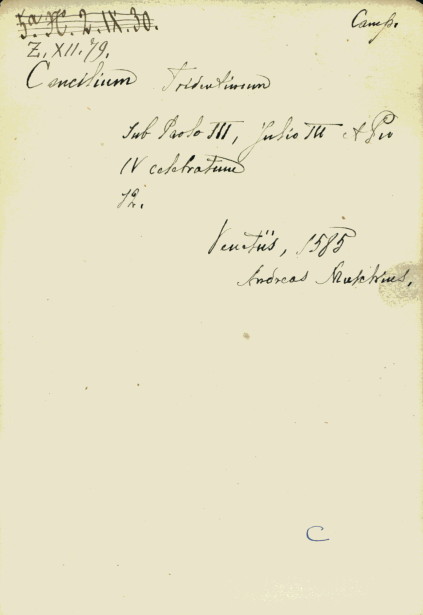 5a. H. 2. IX. 30.
Camp.
Z. XII. 79.
Concilium Tridentinum
sub Paolo III, Julio III et Pio
IV celebratum
12.
Venetiis, 1585
Andreas Muschius,
C